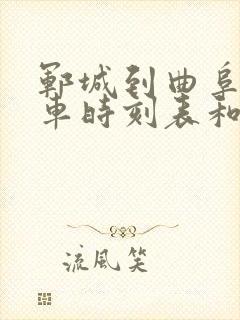 鄆城到曲阜
车時刻表和
流風笑